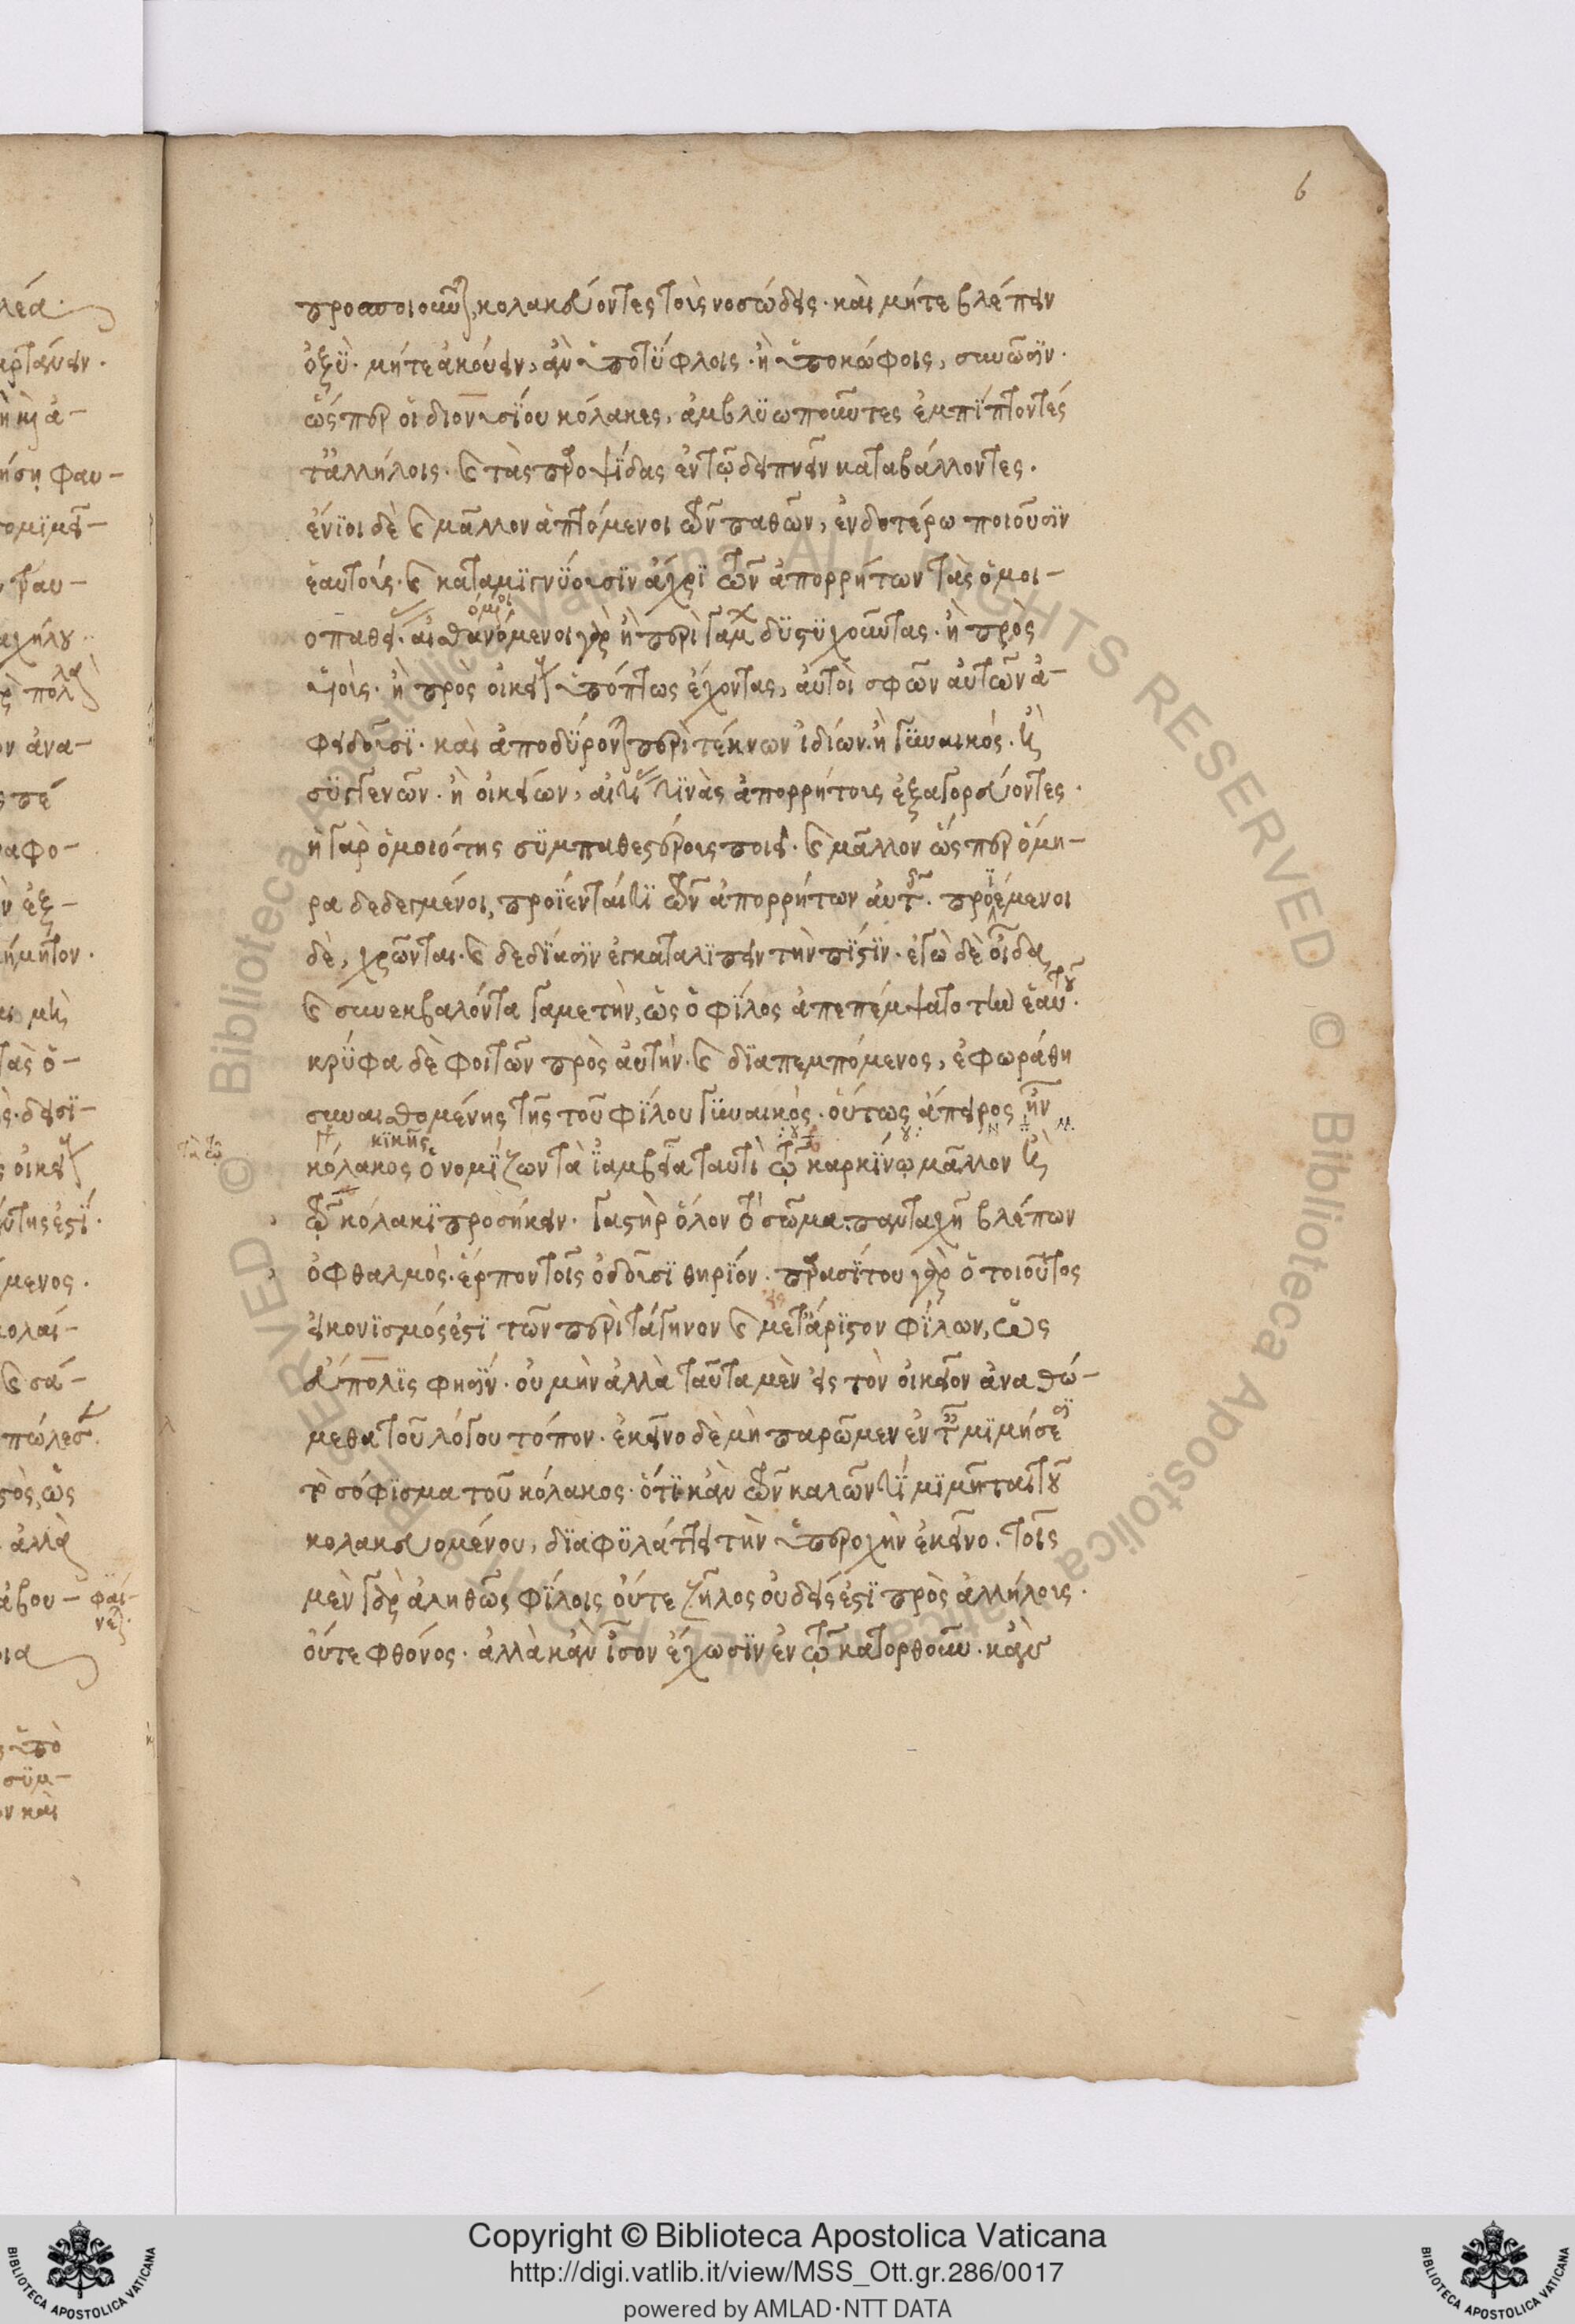 6
προσποιοῦνται, κολακεύοντες τοὺς νοσώδεις. καὶ μήτε βλέπειν
ὀξὺ. μήτε ἀκούειν, ἂν ὑποτύφλοις. ἢ ὑποκώφοις, συνῶσιν.
ὥσπερ οἱ διονυσίου κόλακες, ἀμβλυωποῦντες ἐμπίπτοντές
τ' ἀλλήλοις. καὶ τὰς παροψίδας ἐν τῷ δειπνεῖν καταβάλλοντες.
ἔνιοι δὲ καὶ μᾶλλον ἁπτόμενοι τῶν παθῶν, ἐνδοτέρω ποιοῦσιν
ἑαυτούς. καὶ καταμιγνύουσιν ἄχρι τῶν ἀπορρήτων τὰς ὁμοι-
οπαθεί. αἰσθανόμενοι γὰρ ἢ περὶ γάμ δυστυχοῦντας. ἢ πρὸς
υἱοὺς. ἢ πρὸς οἰκεί ὑπόπτως ἔχοντας, αὐτοὶ σφῶν αὐτῶν ἀ-
φειδοῦσι. καὶ ἀποδύρονται περὶ τέκνων ἰδίων. ἢ γυναικός. ἢ
συγγενῶν. ἢ οἰκείων, αἰτί τινὰς ἀπορρήτους ἐξαγορεύοντες.
ἡ γὰρ ὁμοιότης συμπαθεστέρους ποιεῖ. καὶ μᾶλλον ὥσπερ ὅμη-
ρα δεδεγμένοι, προΐενταί τι τῶν ἀπορρήτων αὐτοῖς. προϊέμενοι
δὲ, χρῶνται. καὶ δεδίασιν ἐγκαταλιπεῖν τὴν πίστιν. ἐγὼ δὲ οἶδα
καὶ συνεκβαλόντα γαμετὴν, ὡς ὁ φίλος ἀπεπέμψατο τὴν ἑαυτοῦ.
κρύφα δὲ φοιτῶν πρὸς αὐτὴν. καὶ διαπεμπόμενος, ἐφωράθη
συναισθομένης τῆς τοῦ φίλου γυναικός. οὕτως ἄπειρος ἦν
κόλακος ὁ νομίζων τὰ ἰαμβεῖα ταυτὶ τῷ καρκίνῳ μᾶλλον ἢ
τῷ κόλακι προσήκειν. γαστὴρ ὅλον τὸ σῶμα. πανταχῆ βλέπων
ὀφθαλμὸς. ἕρπον τοῖς ὀδοῦσι θηρίον. παρασίτου γὰρ ὁ τοιοῦτος
εἰκονισμός ἐστι τῶν περὶ τάγηνον καὶ μετ' ἄριστον φίλων, ὡς
εὔπολις φησίν. οὐ μὴν ἀλλὰ ταῦτα μὲν εἰς τὸν οἰκεῖον ἀναθώ-
μεθα τοῦ λόγου τόπον. ἐκεῖνο δὲ μὴ παρῶμεν ἐν ταῖς μιμήσεσι
τὸ σόφισμα τοῦ κόλακος. ὅτι κἂν τῶν καλῶν τι μιμῆται τοῦ
κολακευομένου, διαφυλάττει τὴν ὑπεροχὴν ἐκείνο. τοῖς
μὲν γὰρ ἀληθῶς φίλοις οὔτε ζῆλος οὐδείς ἐστι πρὸς ἀλλήλους.
οὔτε φθόνος. ἀλλὰ κἂν ἴσον ἔχωσιν ἐν τῷ κατορθοῦν. κἂν
Copyright © Biblioteca Apostolica Vaticana
http://digi.vatlib.it/view/MSS_Ott.gr.286/0017
powered by AMLAD·NTT DATA